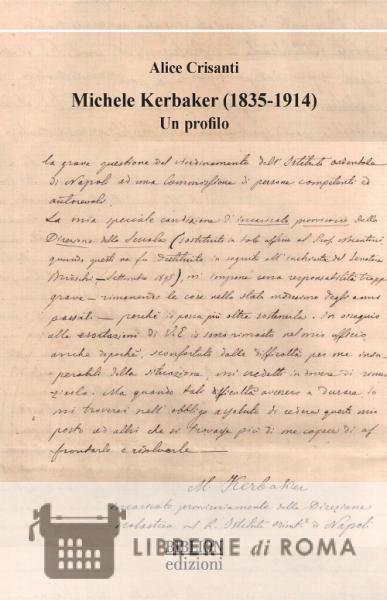 Alice Crisanti
Michele Kerbaker (1835-1914)
Un profilo
la grave questione del riordinamento dell'Istituto orientale
di Napoli ad una Commissione di persone competenti ed
autorevoli.
La mia speciale condizione d'incaricato provvisorio della
Direzione della Scuola (sostituito in tale ufficio al Prof.
quando questi ne fu destituito in seguito all'inchiesta del Senatore
Settembre), m'impone una responsabilità troppo
grave — rimanendo le cose nello stato medesimo degli anni
passati — perchè io possa più oltre sostenerla. In ossequio
alle esortazioni di V.E. io sono rimasto nel mio ufficio
anche dopochè, sconfortato dalle difficoltà per me insu-
perabili della situazione, mi credetti in dovere di
Ma quando tale difficoltà avessero a durare io
mi troverei nell'obbligo assoluto di cedere questo mio
posto ad altri che si trovasse più di me capace di af
frontarle e risolverle —
M. Kerbaker
incaricato provvisoriamente della Direzione
scolastica nel R. Istituto orient. di Napoli
LIBRERIE di ROMA
BIBLION
edizioni